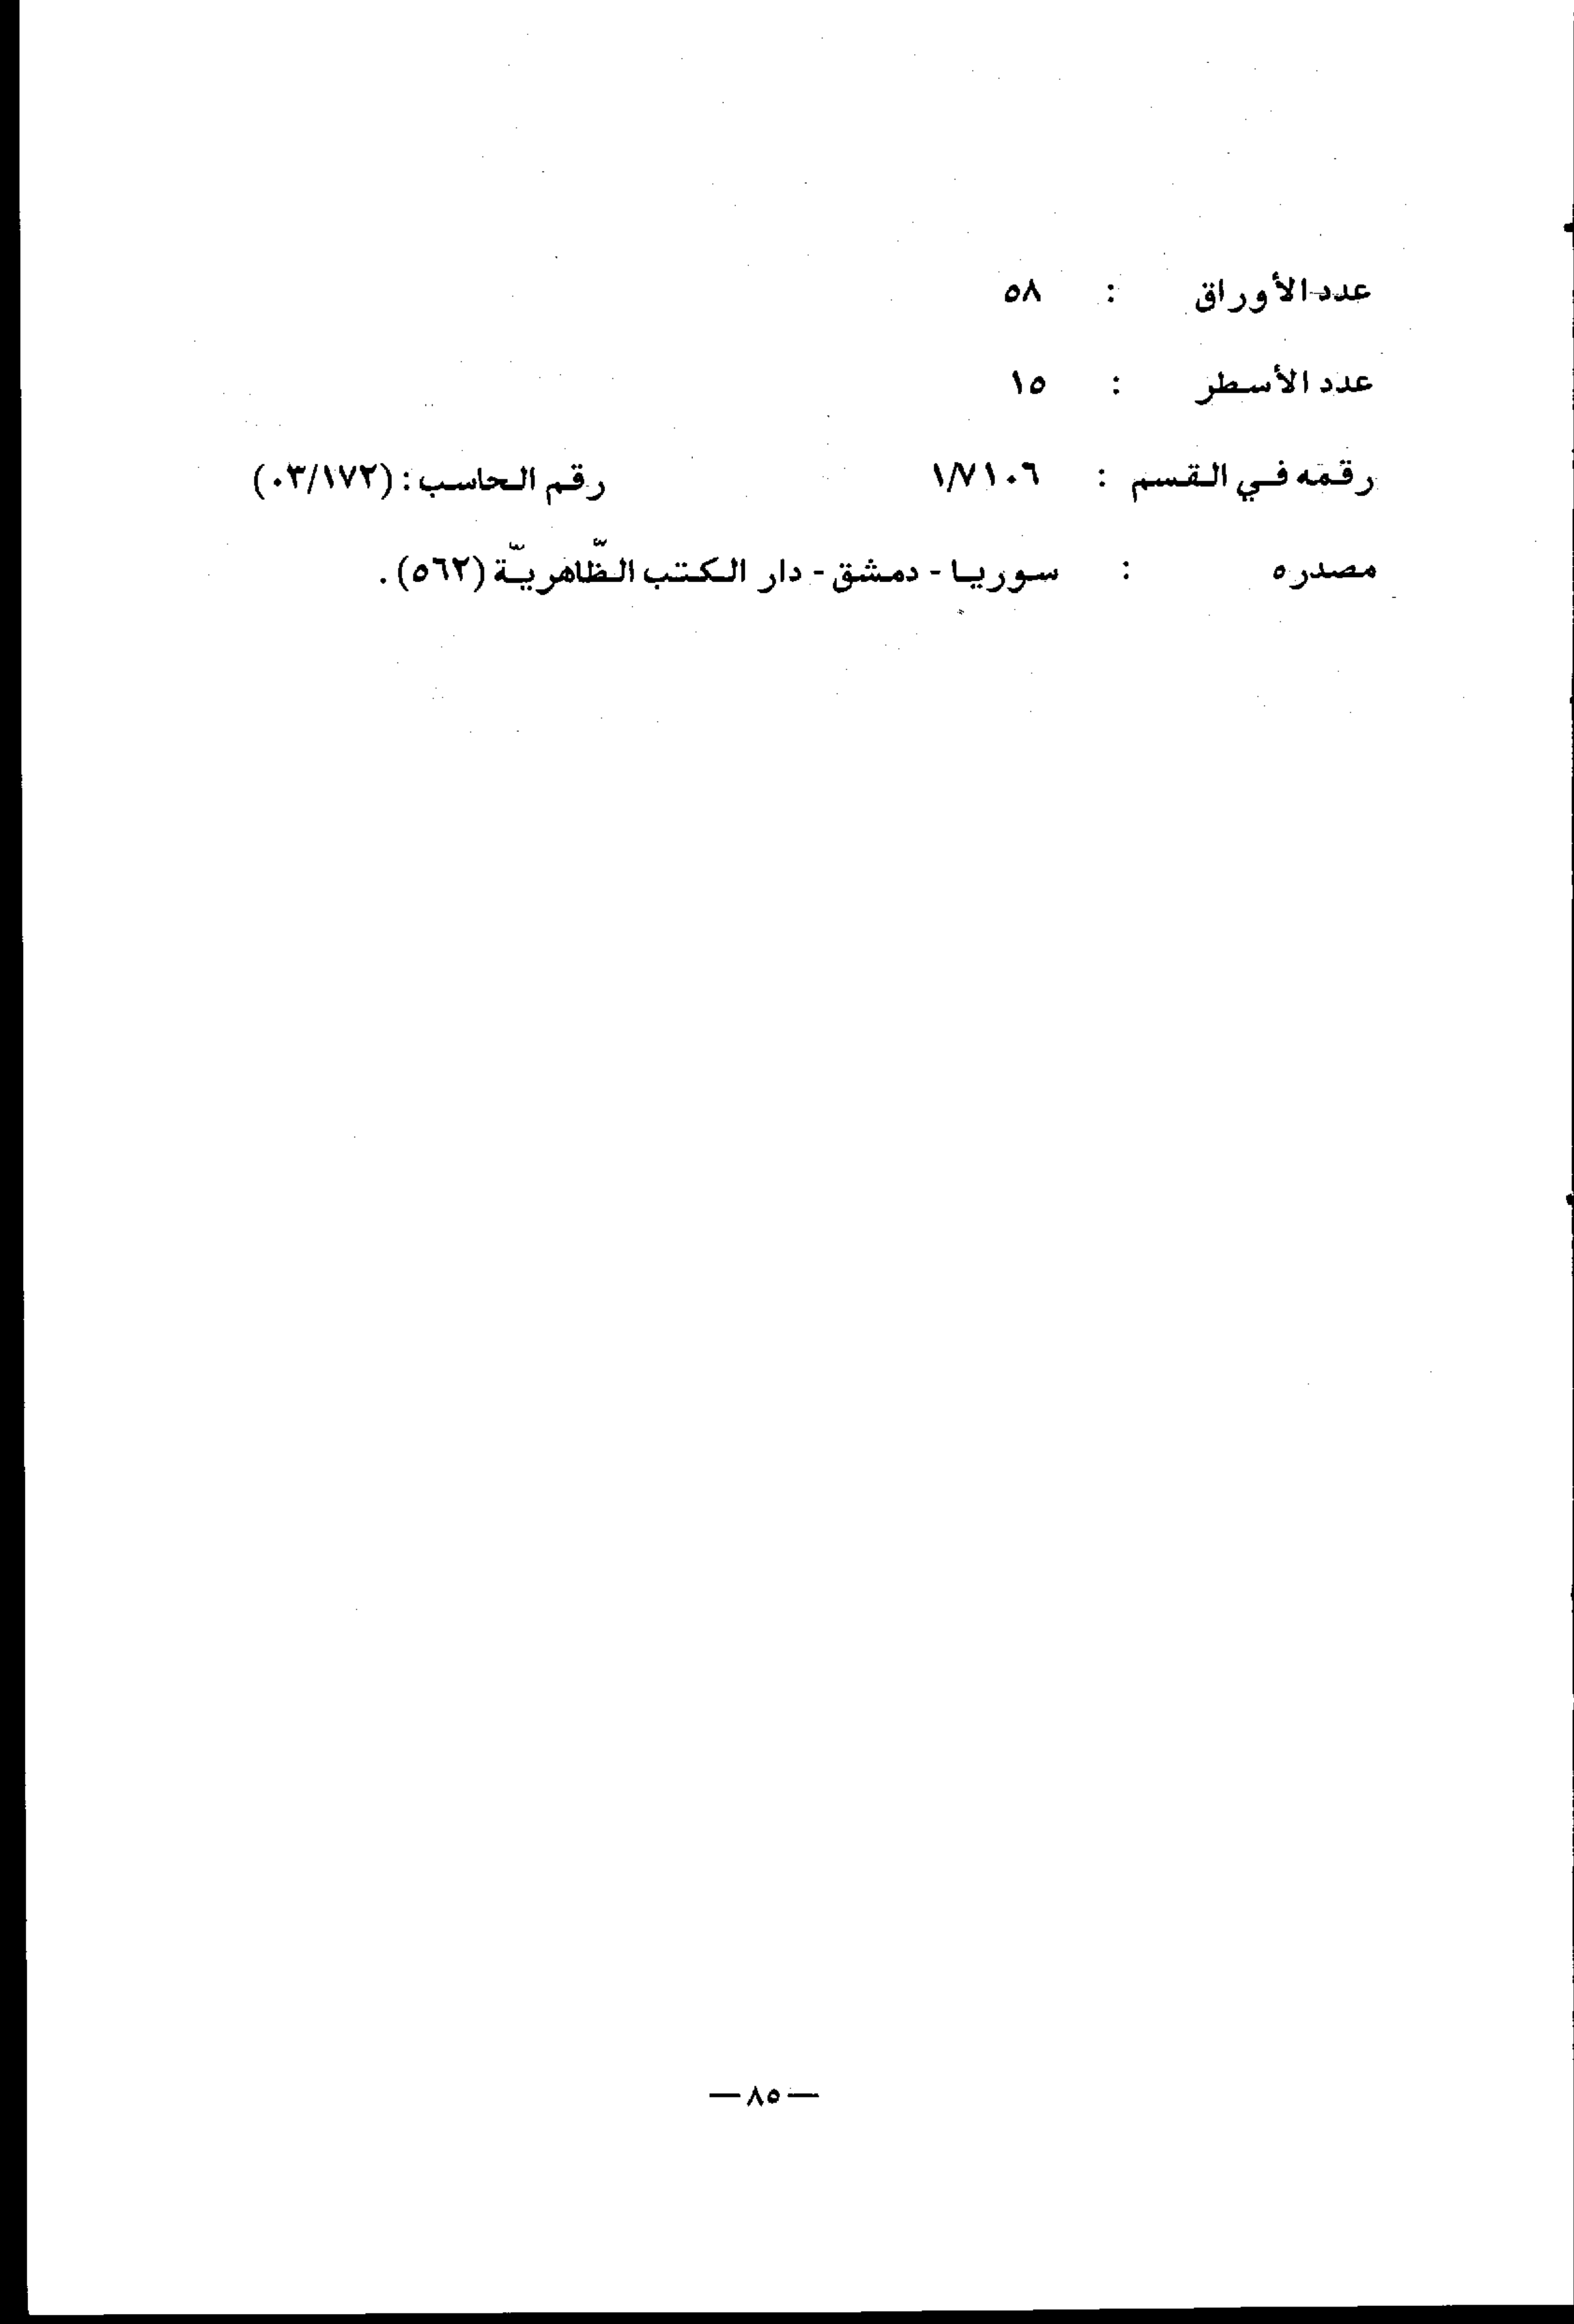 عدد الأوراق : ٥٨
عدد الأسطر : ١٥
رقمه في القسم : ١/٧١٠٦ رقم الحاسب : (٠٣/١٧٢)
مصدره : سوريا - دمشق - دار الكتب الظّاهريّة (٥٦٢) .
— ٨٥ —